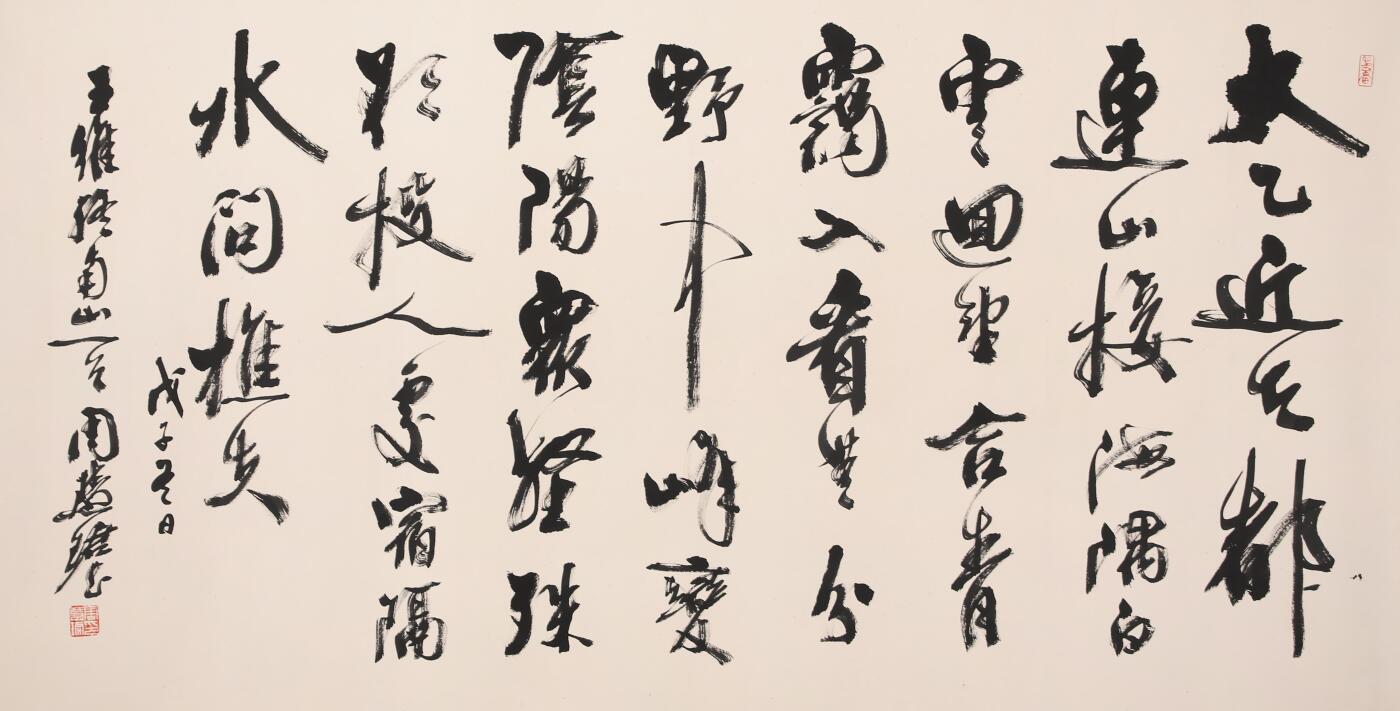 太乙近天都
連山接海隅白
雲迴望合青
靄入看無分
野中峰變
陰陽眾壑殊
欲投人處宿隔
水問樵夫
戊子冬日
王維終南山一首周慧珺书